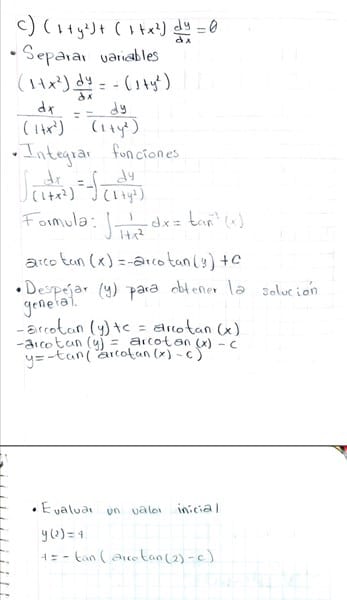 c) (1+y²)+(1+x²) dy/dx = 0
• Separar variables
(1+x²) dy/dx = -(1+y²)
dx/(1+x²) = - dy/(1+y²)
• Integrar funciones
∫ dx/(1+x²) = -∫ dy/(1+y²)
Formula: ∫ 1/1+x² dx = tan⁻¹(x)
arcotan(x) = -arcotan(y) + c
• Despejar (y) para obtener la solución
general.
-arcotan(y)+c = arcotan(x)
-arcotan(y) = arcotan(x) - c
y = -tan(arcotan(x) - c)
• Evaluar un valor inicial
y(2) = 1
1 = -tan(arcotan(2) - c)